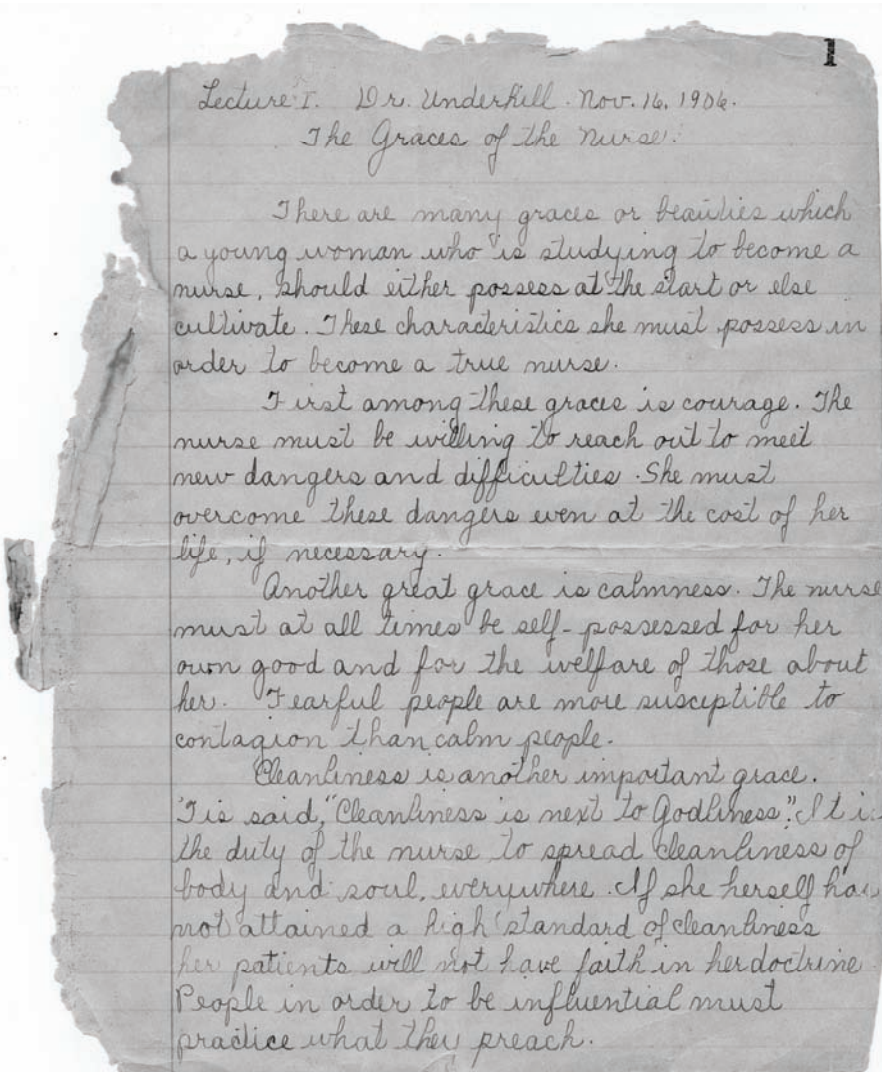 1
Lecture I. Dr. Underhill. Nov. 16, 1906.
The Graces of the Nurse.
There are many graces or beauties which
a young woman who is studying to become a
nurse, should either possess at the start or else
cultivate. These characteristics she must possess in
order to become a true nurse.
First among these graces is courage. The
nurse must be willing to reach out to meet
new dangers and difficulties. She must
overcome these dangers even at the cost of her
life, if necessary.
Another great grace is calmness. The nurse
must at all times be self-possessed for her
own good and for the welfare of those about
her. Fearful people are more susceptible to
contagion than calm people.
Cleanliness is another important grace.
'Tis said, "Cleanliness is next to Godliness." It is
the duty of the nurse to spread cleanliness of
body and soul, everywhere. If she herself has
not attained a high standard of cleanliness
her patients will not have faith in her doctrine
People in order to be influential must
practice what they preach.